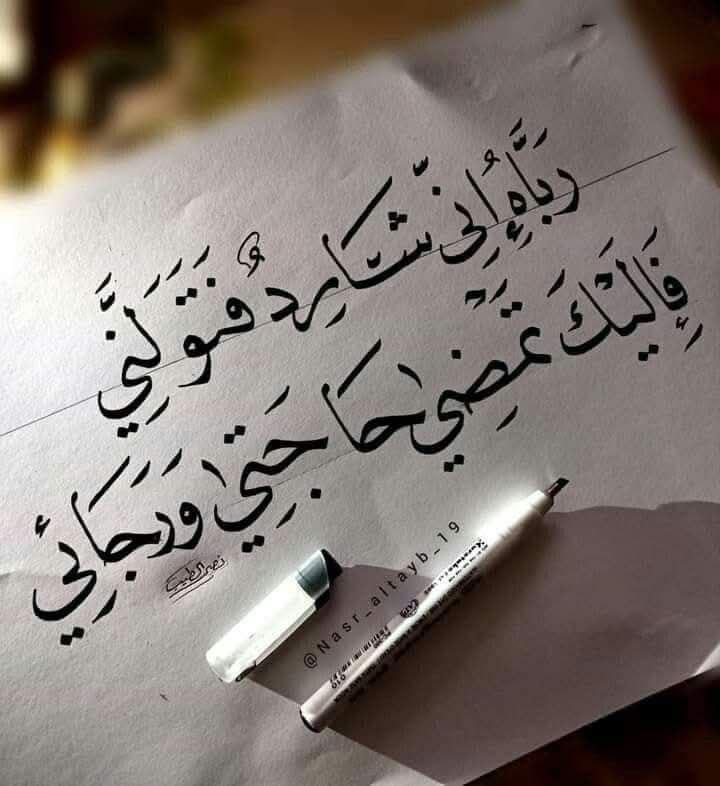 رَبَّاهُ إِنِّي شَارِدٌ فَتَوَلَّنِي
فَإِلَيْكَ تَمْضِي حَاجَتِي وَرَجَائِي
@Nasr_altayb_19